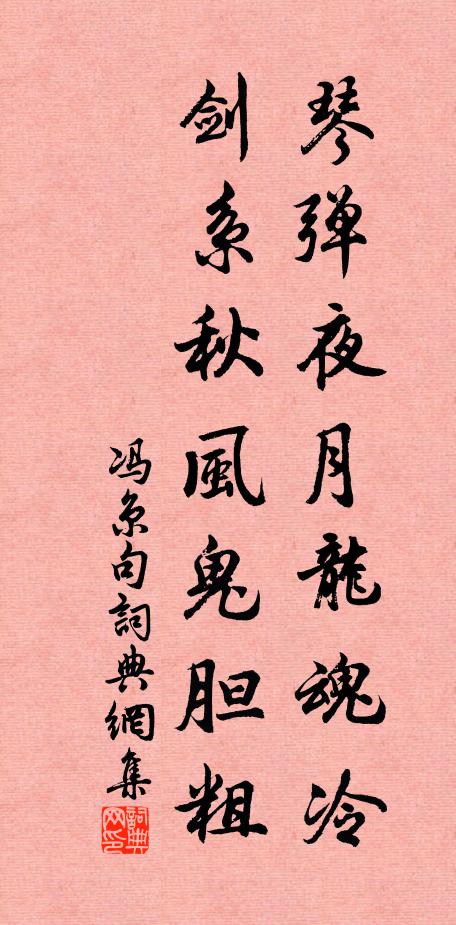 琴弹夜月龍魂冷
剑系秋風鬼胆粗
冯京句詞典網集
詞典网印